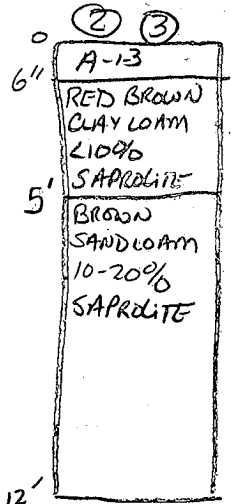 2 3
0
A-1-3
6"
RED BROWN
CLAY LOAM
<10%
SAPROLITE
5'
BROWN
SAND LOAM
10-20%
SAPROLITE
12'